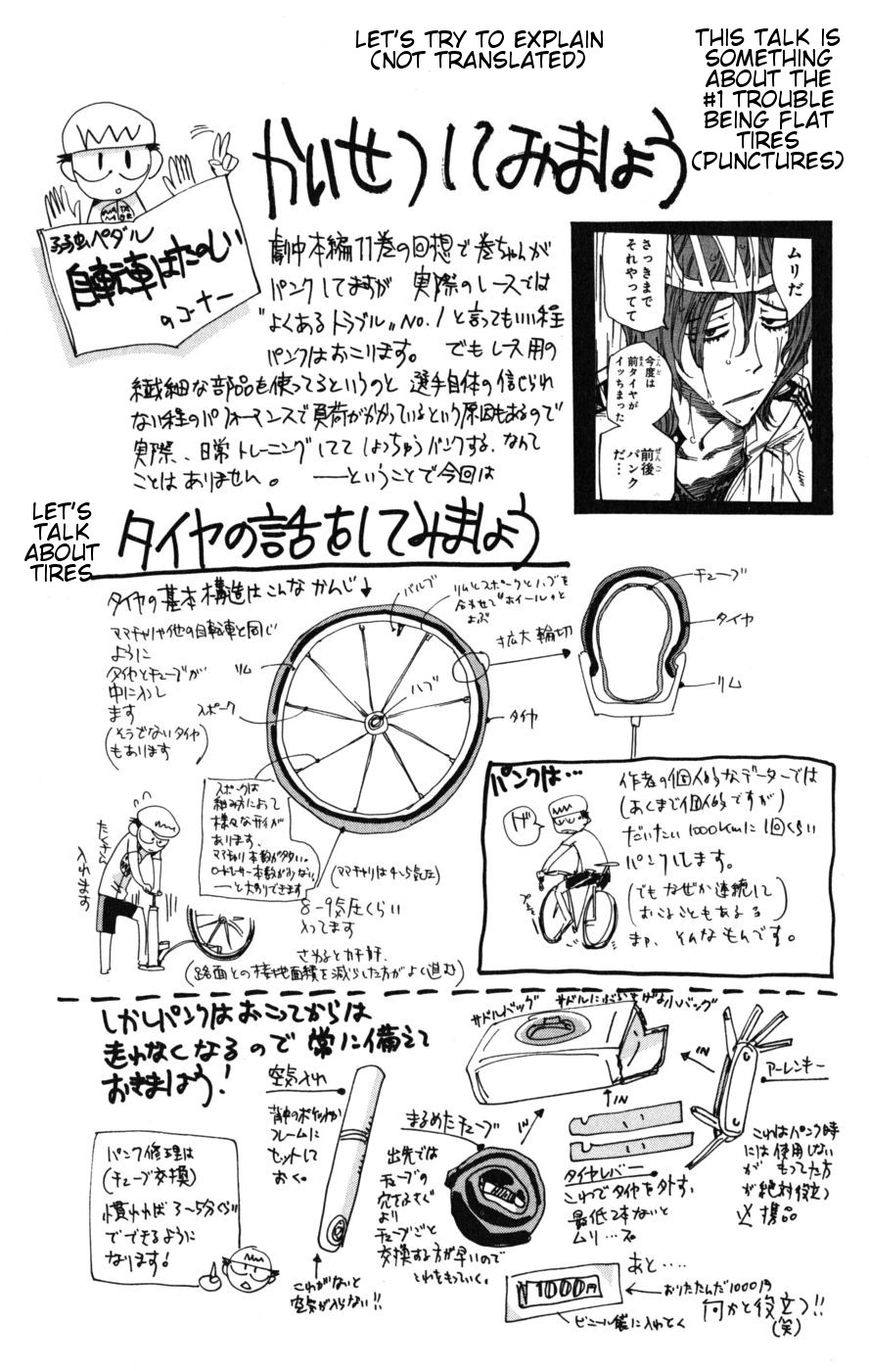 LET'S TRY TO EXPLAIN
(NOT TRANSLATED)
THIS TALK IS
SOMETHING
ABOUT THE
#1 TROUBLE
BEING FLAT
TIRES
(PUNCTURES)
かいせつしてみましょう
弱虫ペダル
自転車はたのしい
のコーナー
劇中本編11巻の回想で巻ちゃんが
パンクしてますが 実際のレースでは
"よくあるトラブル"No.1と言ってもいい程
パンクはおこります。 でもレース用の
繊細な部品を使ってるというのと 選手自体の信じられ
ない程のパフォーマンスで負荷がかかっているという原因もあるので
実際、日常トレーニングしてて しょっちゅうパンクする、なんて
ことはありません。 ──ということで今回は
ムリだ
さっきまで
それやってて
今度は
前タイヤが
イッちまった
前後
パンク
だ…
LET'S
TALK
ABOUT
TIRES
タイヤの話をしてみましょう
タイヤの基本構造はこんなかんじ↓
ママチャリや他の自転車と同じ
ように
タイヤとチューブが
中に入し
ます
(そうでないタイヤ
もあります)
バルブ
リムとスポークとハブを
合わせて"ホイール"と
よぶ
リム
スポーク
ハブ
タイヤ
拡大 輪切
チューブ
タイヤ
リム
スポークは
組み方によって
様々なサイがあります。
ママチャリ本数が多い。
ロードレーサー本数が少ない。
──と大わりできます
(ママチャリは4~5気圧)
8-9気圧くらい
入ってます
さわるとカチカチ。
(路面との接地面積を減らした方がよく進む)
たくさん
入れます
パンクは…
げっ
作者の個人的なデーターでは
(あくまで個人的ですが)
だいたい1000kmに1回くらい
パンクします。
(でもなぜか連続して
おこることもあるる)
まァ、そんなもんです。
しかしパンクはおこってからは
走れなくなるので 常に備えて
おきましょう!
サドルバッグ
サドルにぶらさげる小バッグ
IN
IN
アーレンキー
これはパンク時
には使用しない
が もってた方
が絶対役立つ
必携品
空気入れ
背中のポケットか
フレームに
セットして
おく。
これがないと
空気が入らない!!
まるめたチューブ
出先では
チューブの
穴をふさぐ
より
チューブごと
交換する方が早いので
これをもっていく。
タイヤレバー
これでタイヤを外す。
最低2本ないと
ムリ…
パンク修理は
(チューブ交換)
慣れれば3~5分ぐらい
でできるように
なります!
あと…
¥1000円
おりたたんだ1000円
何かと役立つ!!
(笑)
ビニール袋に入れとく